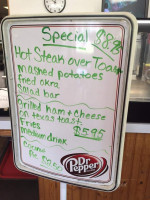 Special $8.85
Hot Steak over Toast
mashed potatoes
fried okra
salad bar
Grilled ham + cheese
on texas toast
fries
medium drink $5.95
Dr Pepper